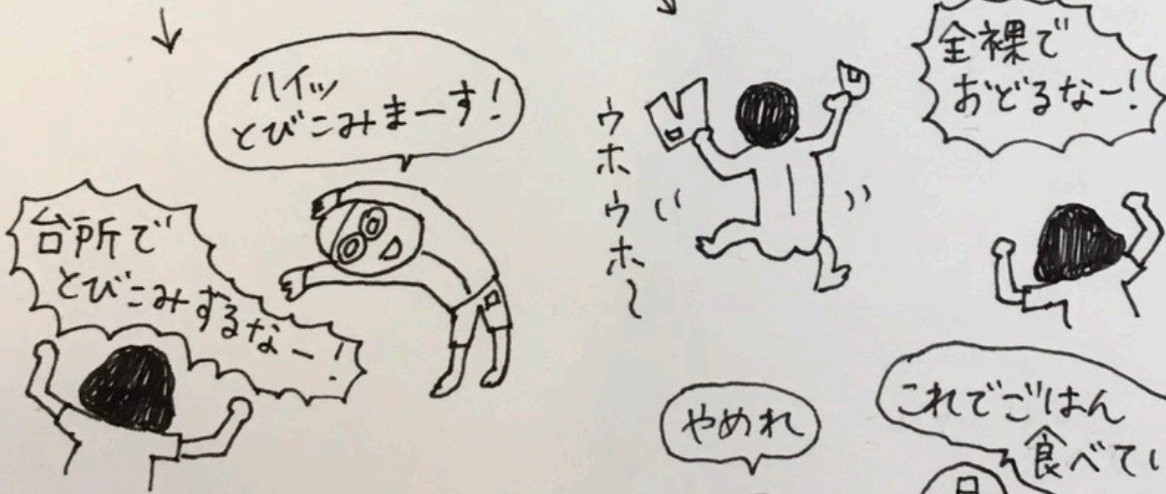 ハイッ
とびこみまーす!
台所で
とびこみするなー!
ウホウホ〜
全裸で
おどるなー!
やめれ
これでごはん
食べてい